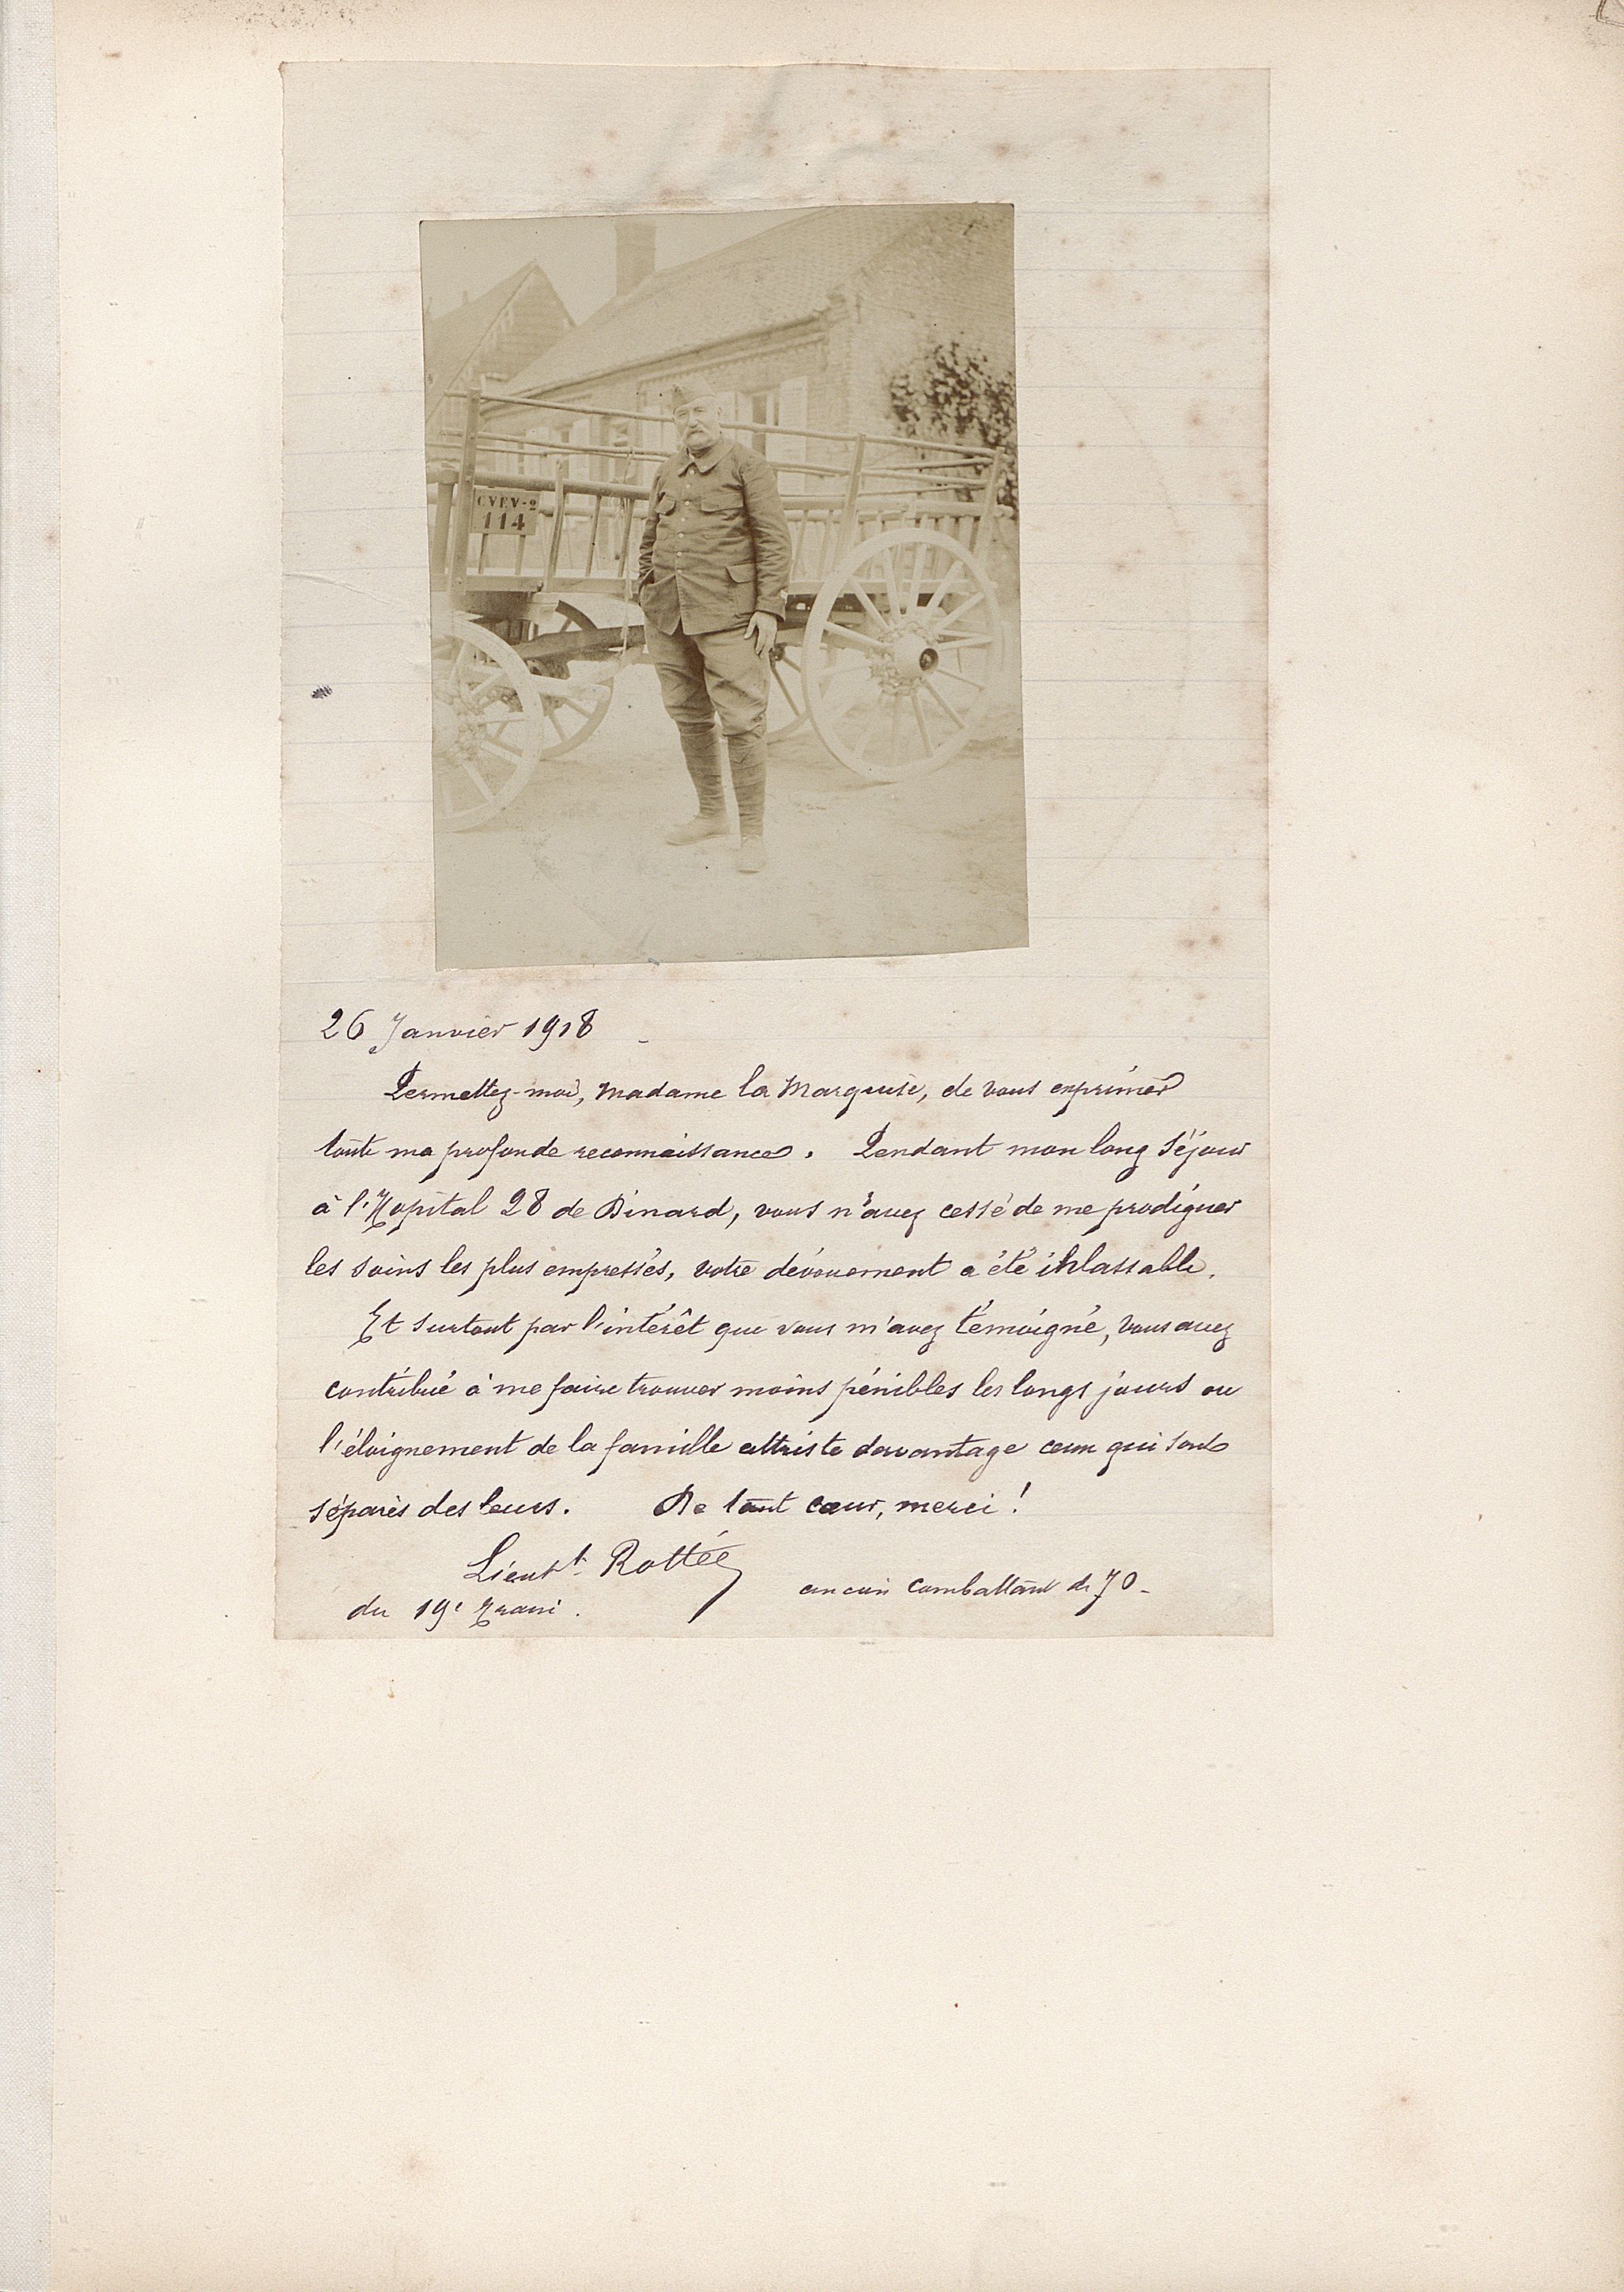 CVFV-2
114
26 Janvier 1918 -
Permettez-moi, Madame la Marquise, de vous exprimer
toute ma profonde reconnaissance. Pendant mon long séjour
à l'Hopital 28 de Dinard, vous n'avez cessé de me prodiguer
les soins les plus empressés, votre dévouement a été inlassable.
Et surtout par l'intérêt que vous m'avez témoigné, vous avez
contribué à me faire trouver moins pénibles les longs jours ou
l'éloignement de la famille attriste davantage ceux qui sont
séparés des leurs. De tout cœur, merci !
Lieut<sup>t</sup>. Rottée
ancien combattant de 70 -
du 19<sup>e</sup>